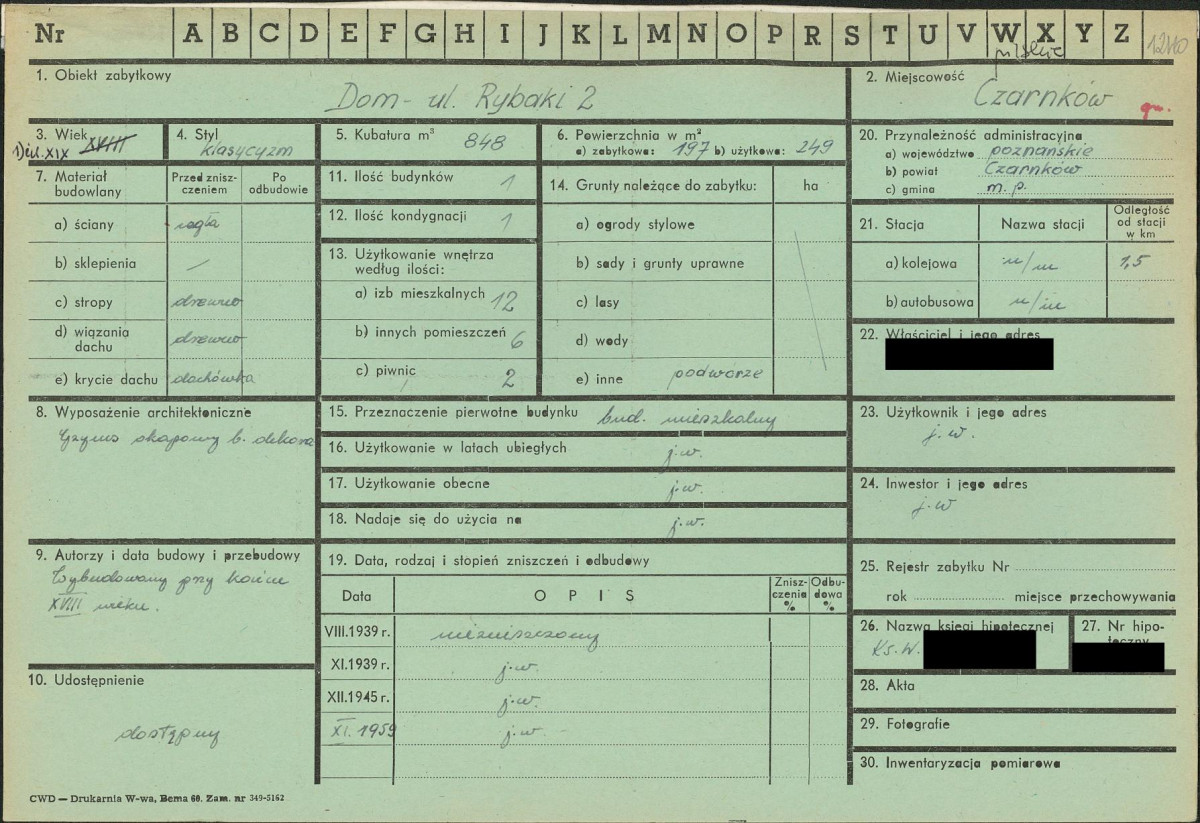 Nr A B C D E F G H I J K L M N O P R S T U V W X Y Z 1240
pilskie
1. Obiekt zabytkowy
Dom - ul. Rybaki 2
2. Miejscowość
Czarnków
gm.
3. Wiek
XVIII XIX
4. Styl
klasycyzm
5. Kubatura m³ 848
6. Powierzchnia w m²
a) zabytkowa: 197 b) użytkowa: 249
20. Przynależność administracyjna
a) województwo poznańskie
b) powiat Czarnków
c) gmina m. p.
7. Materiał budowlany
Przed zniszczeniem
Po odbudowie
a) ściany cegła
b) sklepienia —
c) stropy drewno
d) wiązania dachu drewno
e) krycie dachu dachówka
11. Ilość budynków 1
12. Ilość kondygnacji 1
13. Użytkowanie wnętrza według ilości:
a) izb mieszkalnych 12
b) innych pomieszczeń 6
c) piwnic 2
14. Grunty należące do zabytku: ha
a) ogrody stylowe
b) sady i grunty uprawne
c) lasy
d) wody
e) inne podwórze
21. Stacja Nazwa stacji Odległość od stacji w km
a) kolejowa w/m 1,5
b) autobusowa w/m
22. Właściciel i jego adres
8. Wyposażenie architektoniczne
Gzyms okapowy b. dekora
15. Przeznaczenie pierwotne budynku bud. mieszkalny
16. Użytkowanie w latach ubiegłych j.w.
17. Użytkowanie obecne j.w.
18. Nadaje się do użycia na j.w.
23. Użytkownik i jego adres
j.w.
24. Inwestor i jego adres
j.w
9. Autorzy i data budowy i przebudowy
Wybudowany przy końcu
XVIII wieku.
19. Data, rodzaj i stopień zniszczeń i odbudowy
Data OPIS Zniszczenia % Odbudowa %
VIII.1939 r. niezniszczony
XI.1939 r. j.w.
XII.1945 r. j.w.
XI. 1959 j.w.
25. Rejestr zabytku Nr
rok miejsce przechowywania
26. Nazwa księgi hipotecznej
Ks.W.
27. Nr hipoteczny
10. Udostępnienie
dostępny
28. Akta
29. Fotografie
30. Inwentaryzacja pomiarowa
CWD — Drukarnia W-wa, Bema 60. Zam. nr 349-5162